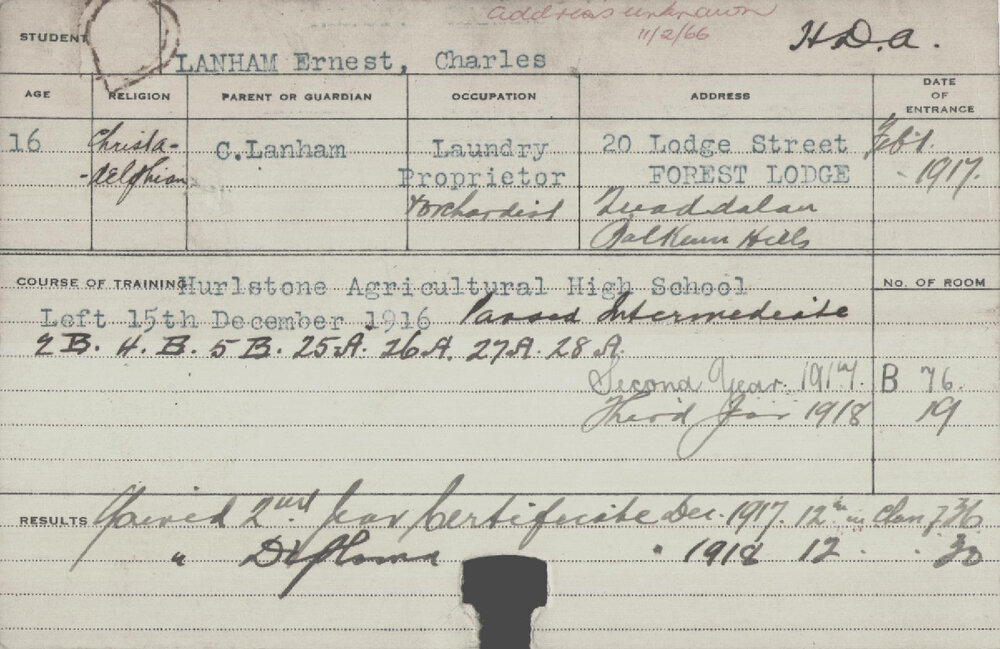 address unknown
11/2/66
H.D.A.
STUDENT
LANHAM Ernest, Charles
AGE RELIGION PARENT OR GUARDIAN OCCUPATION ADDRESS DATE OF ENTRANCE
16 Christa- C.Lanham Laundry 20 Lodge Street Feb'y.
-delphian Proprietor FOREST LODGE 1917.
+ Orchardist
Hills
COURSE OF TRAINING Hurlstone Agricultural High School No. OF ROOM
Left 15th December 1916 Passed Intermediate
2 B. 4. B. 5 B. 25A. 26A. 27A. 28A.
Second Year. 1917. B 76.
Third Year 1918 19
RESULTS Gained 2nd Year Certificate Dec. 1917. 12th in Class of 36
" Diploma " 1918 12 . . 30